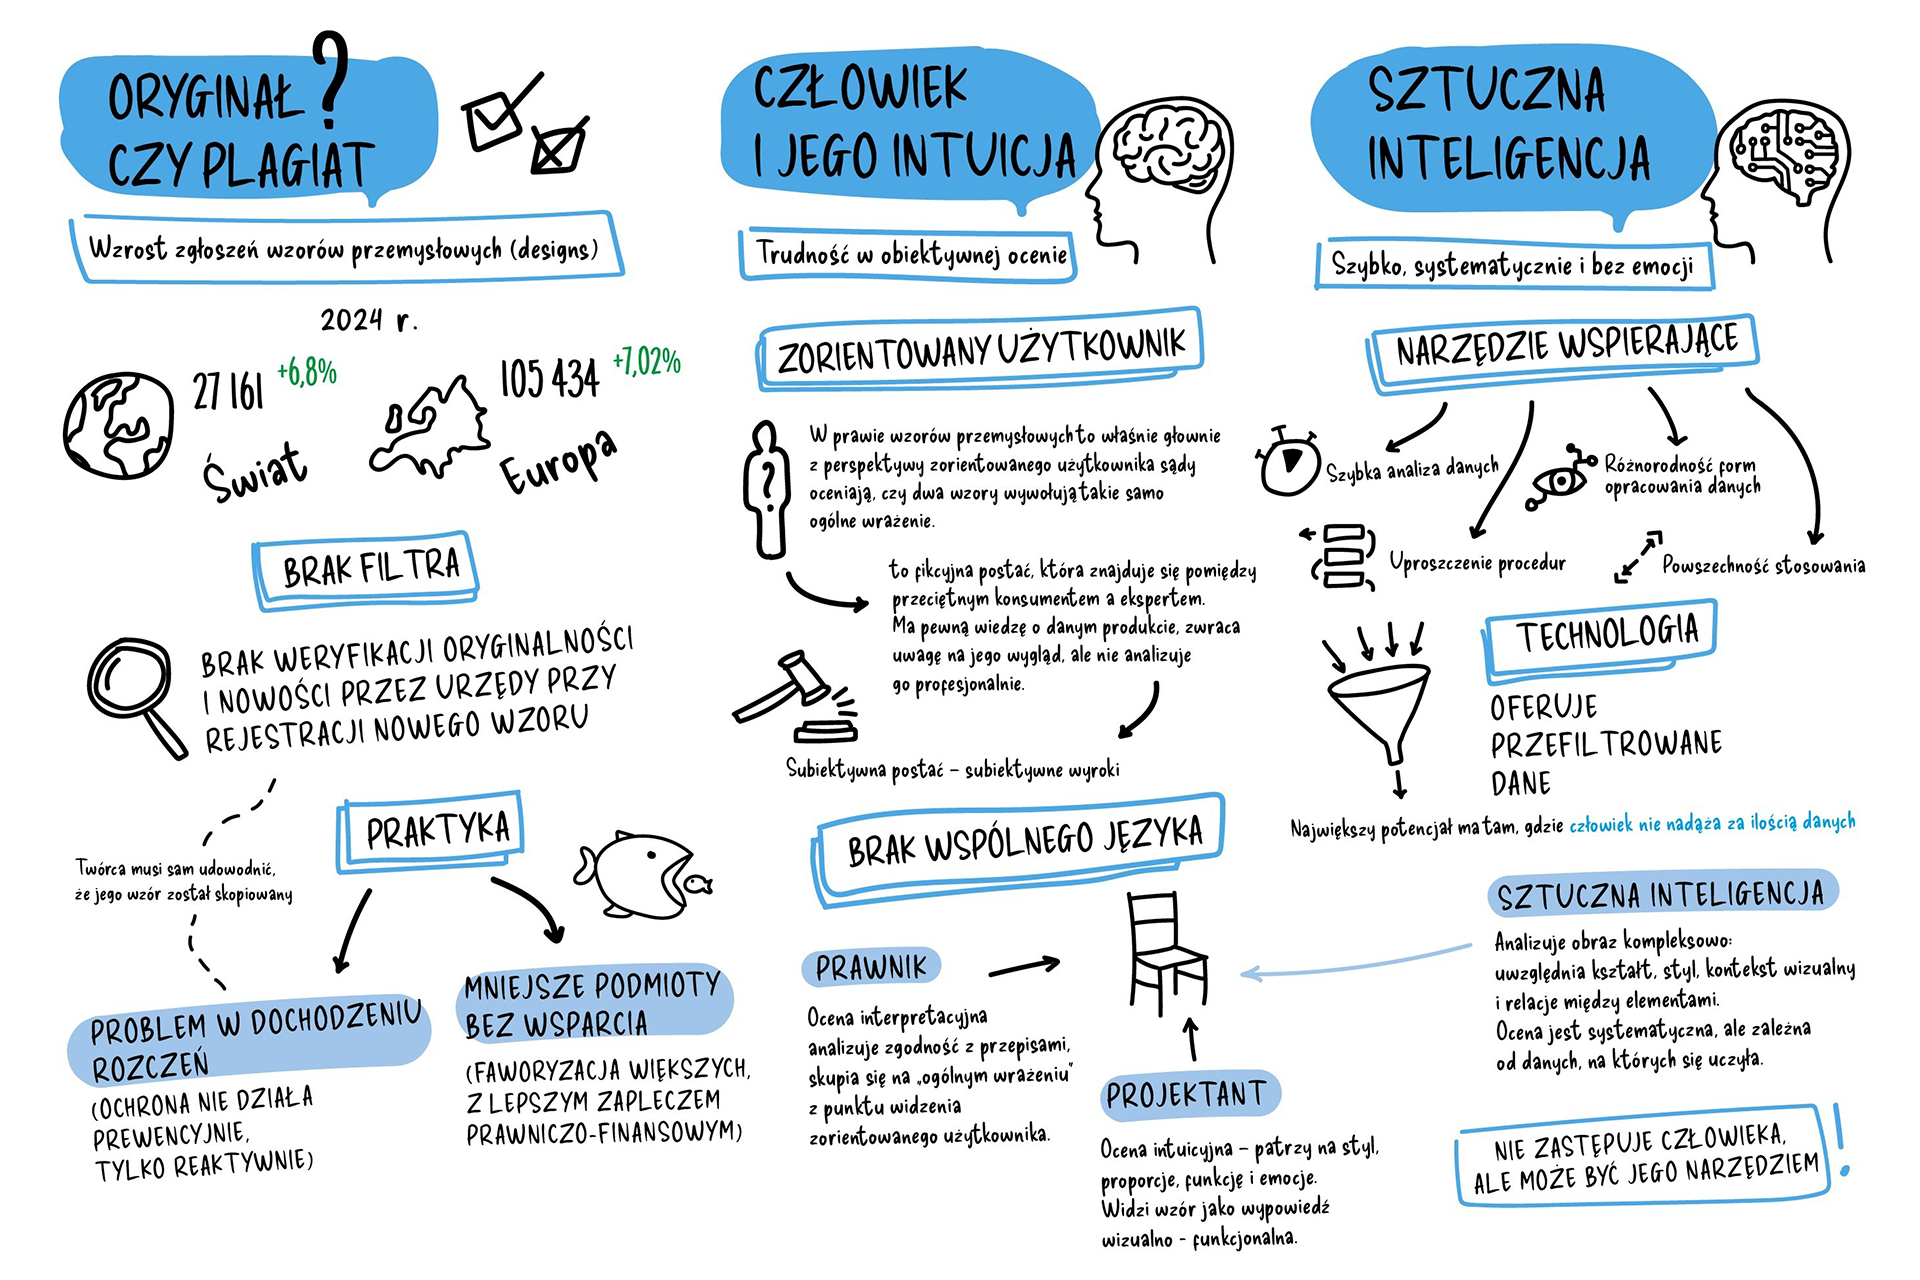 ORYGINAŁ?
CZY PLAGIAT
Wzrost zgłoszeń wzorów przemysłowych (designs)
2024 r.
27 161 +6,8%
Świat
105 434 +7,02%
Europa
BRAK FILTRA
BRAK WERYFIKACJI ORYGINALNOŚCI
I NOWOŚCI PRZEZ URZĘDY PRZY
REJESTRACJI NOWEGO WZORU
PRAKTYKA
Twórca musi sam udowodnić,
że jego wzór został skopiowany
PROBLEM W DOCHODZENIU
ROZCZEŃ
(OCHRONA NIE DZIAŁA
PREWENCYJNIE,
TYLKO REAKTYWNIE)
MNIEJSZE PODMIOTY
BEZ WSPARCIA
(FAWORYZACJA WIĘKSZYCH,
Z LEPSZYM ZAPLECZEM
PRAWNICZO-FINANSOWYM)
CZŁOWIEK
I JEGO INTUICJA
Trudność w obiektywnej ocenie
ZORIENTOWANY UŻYTKOWNIK
?
W prawie wzorów przemysłowych to właśnie głownie
z perspektywy zorientowanego użytkownika sądy
oceniają, czy dwa wzory wywołują takie samo
ogólne wrażenie.
to fikcyjna postać, która znajduje się pomiędzy
przeciętnym konsumentem a ekspertem.
Ma pewną wiedzę o danym produkcie, zwraca
uwagę na jego wygląd, ale nie analizuje
go profesjonalnie.
Subiektywna postać – subiektywne wyroki
BRAK WSPÓLNEGO JĘZYKA
PRAWNIK
Ocena interpretacyjna
analizuje zgodność z przepisami,
skupia się na „ogólnym wrażeniu"
z punktu widzenia
zorientowanego użytkownika.
PROJEKTANT
Ocena intuicyjna – patrzy na styl,
proporcje, funkcję i emocje.
Widzi wzór jako wypowiedź
wizualno - funkcjonalna.
SZTUCZNA
INTELIGENCJA
Szybko, systematycznie i bez emocji
NARZĘDZIE WSPIERAJĄCE
Szybka analiza danych
Różnorodność form
opracowania danych
Uproszczenie procedur
Powszechność stosowania
TECHNOLOGIA
OFERUJE
PRZEFILTROWANE
DANE
Największy potencjał ma tam, gdzie człowiek nie nadąża za ilością danych
SZTUCZNA INTELIGENCJA
Analizuje obraz kompleksowo:
uwzględnia kształt, styl, kontekst wizualny
i relacje między elementami.
Ocena jest systematyczna, ale zależna
od danych, na których się uczyła.
NIE ZASTĘPUJE CZŁOWIEKA,
ALE MOŻE BYĆ JEGO NARZĘDZIEM!